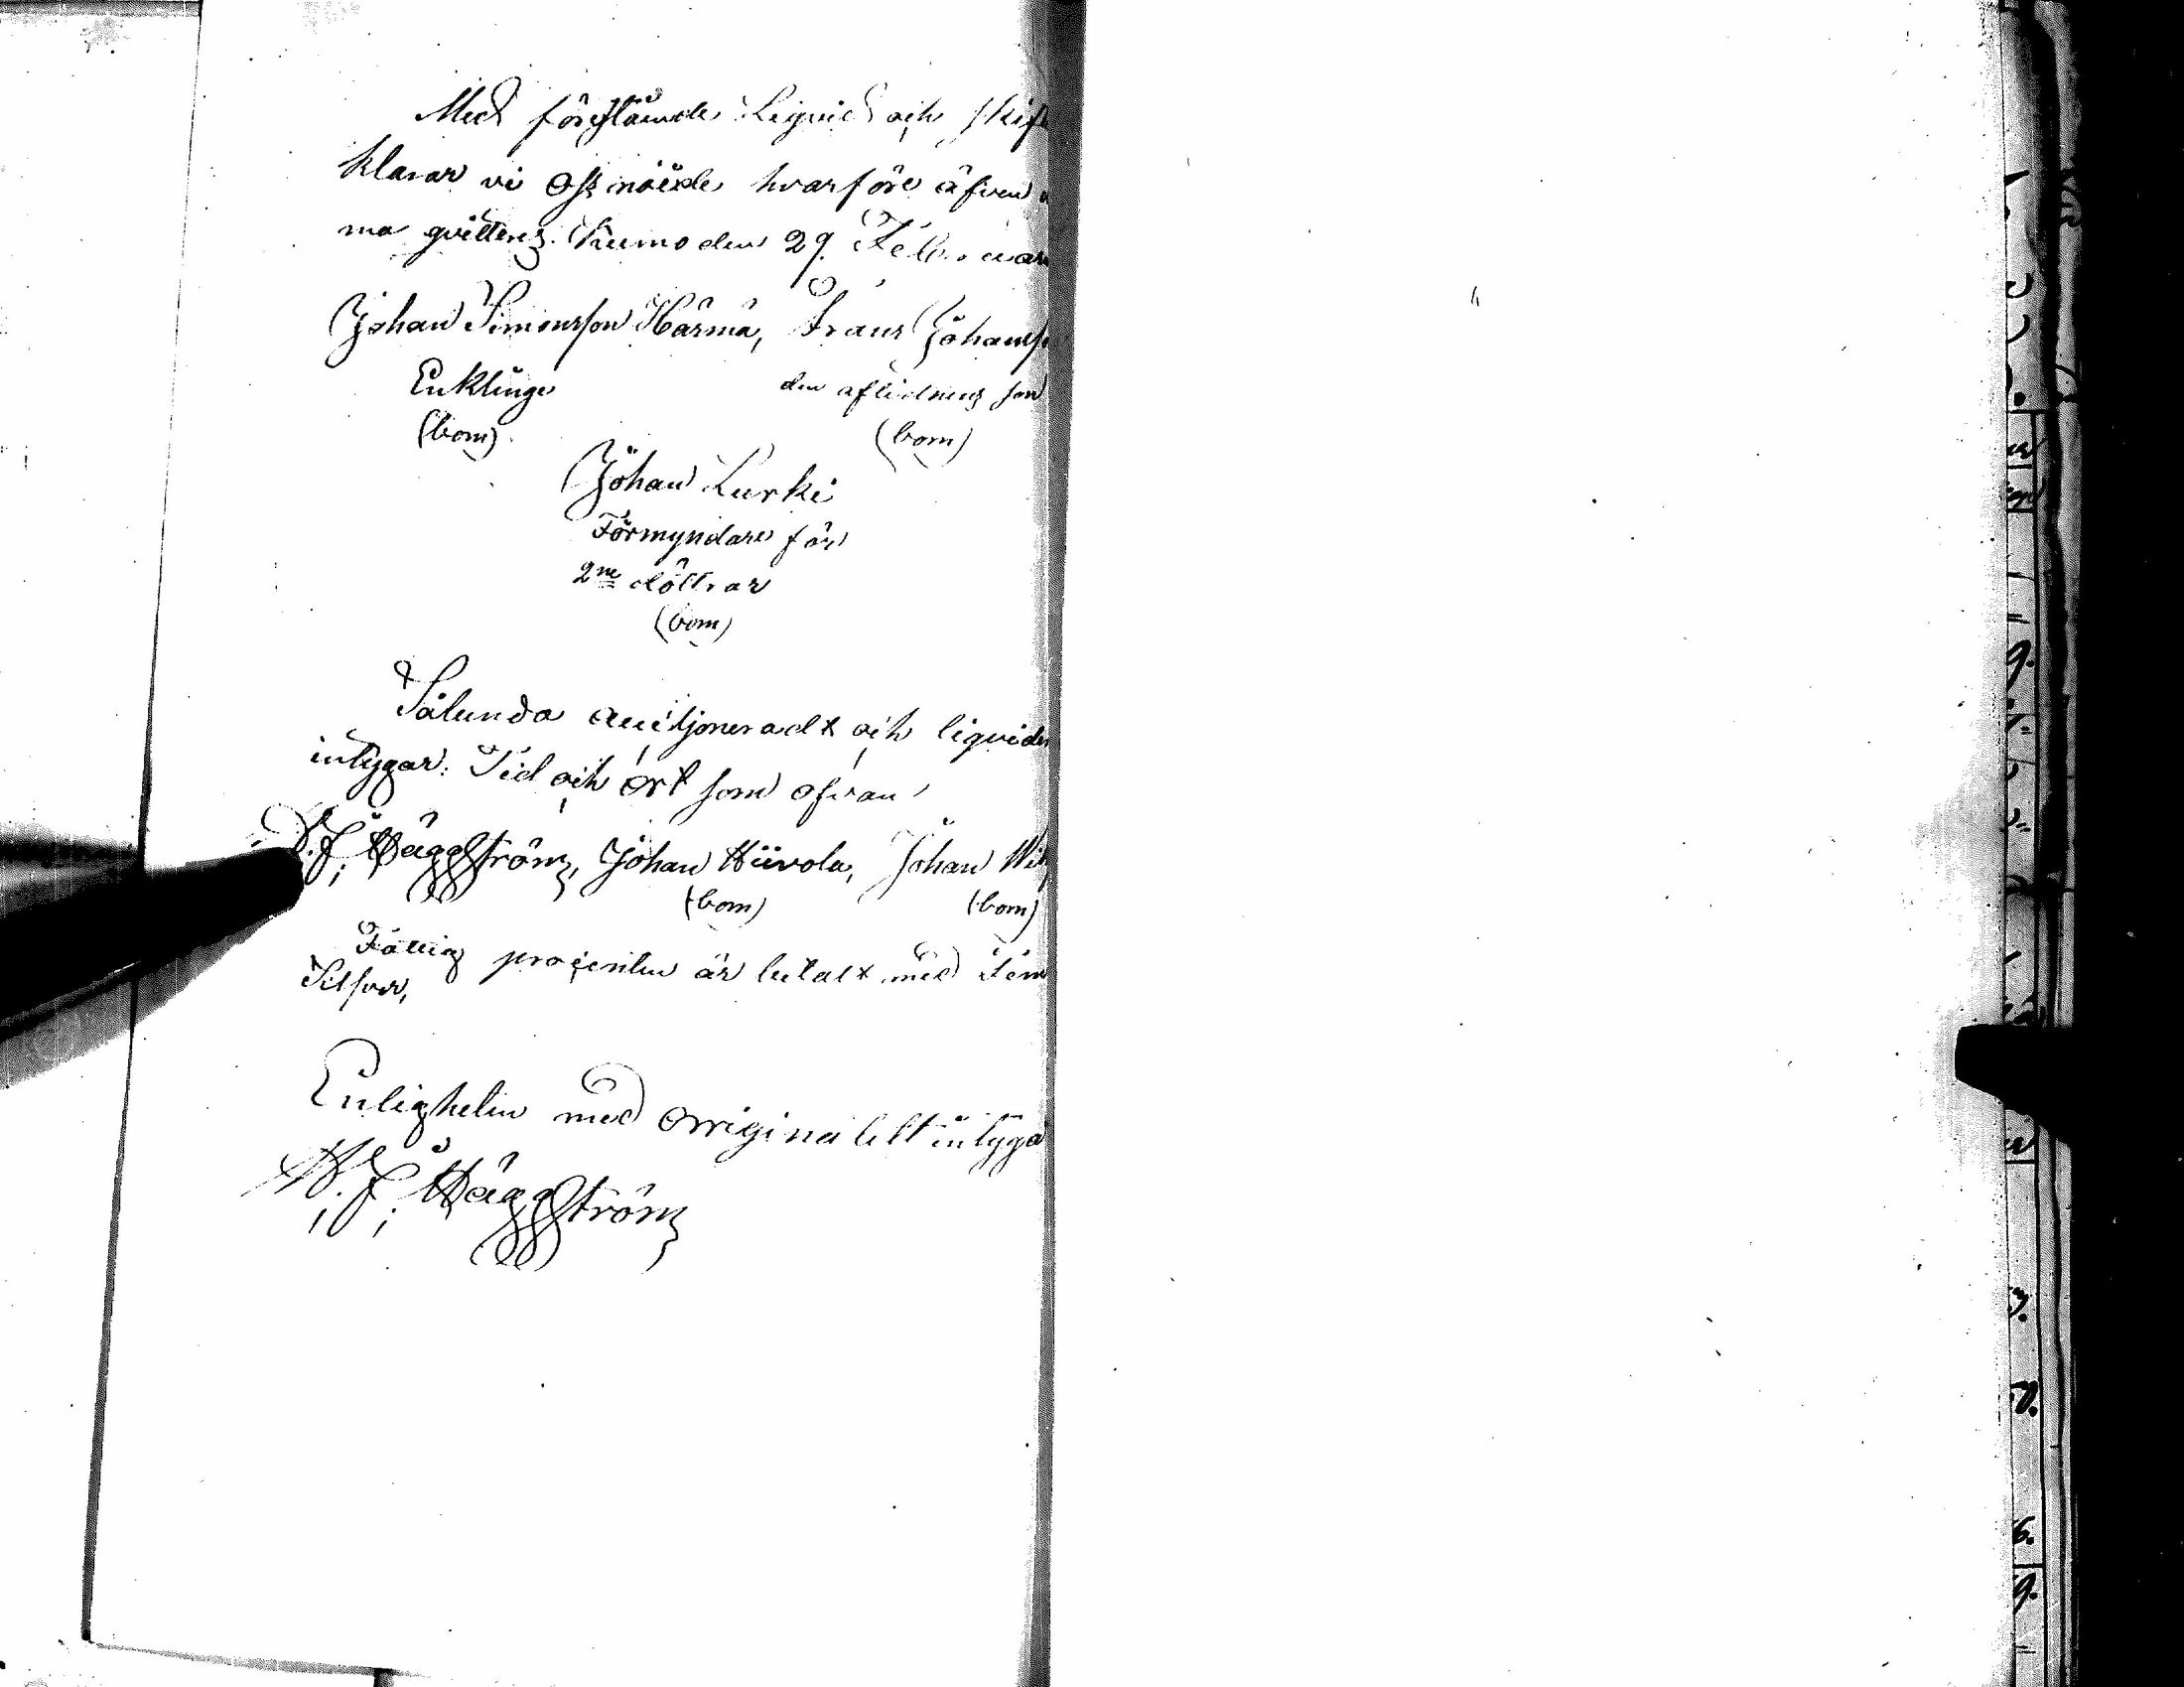 Med föreståinde Liqvid och skif
klarar vi oss nöide hvarföre äfven
ma qvittens. Kumo den 29. Februar
Johan Simonsson Härmä, Frans Johansso
Enkling den aflidnes son
(bom) (bom)
Johan Lurki
Förmyndare för
2ne döttrar
(bom)
Sålunda auctjoneradt och liqvider
intygar: Tid och ort som ofvan
W. F. Häggström, Johan Hiivola, Johan Wil
(bom) (bom)
Fattig procenten är betalt med
Silfver,
Enligheten med orriginalilt intyga
W. F. Häggström